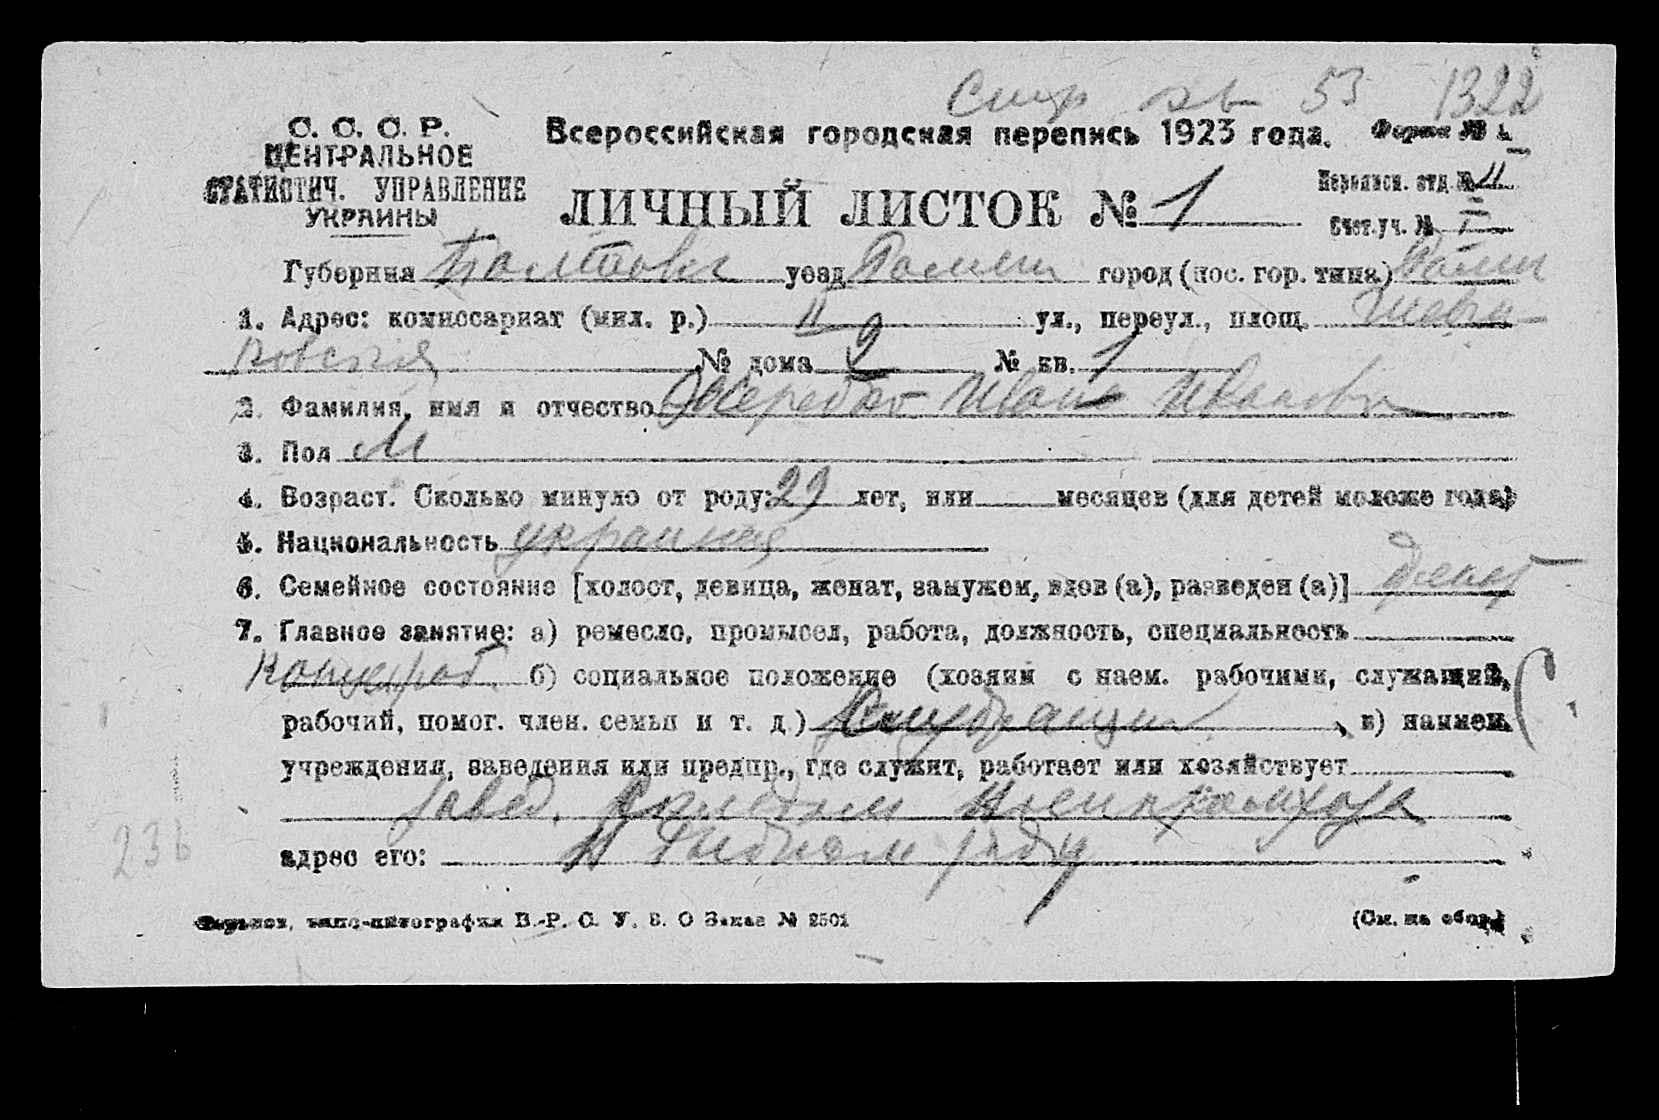 1322
С. С. С. Р.
ЦЕНТРАЛЬНОЕ
СТАТИСТИЧ. УПРАВЛЕНИЕ
УКРАИНЫ
Всероссийская городская перепись 1923 года.
Форма № 1.
ЛИЧНЫЙ ЛИСТОК № 1
Переписн. отд. № II
Счет. уч. № I
Губерния Полтавск уезд Ромен город (пос. гор. типа) Ромн
1. Адрес: комиссариат (мил. р.) II ул., переул., площ. Шевчен-
ковская № дома 2 № кв. 1
2. Фамилия, имя и отчество Жеребко Иван Иванович
3. Пол М
4. Возраст. Сколько минуло от роду: 29 лет, или месяцев (для детей моложе года)
5. Национальность украинец
6. Семейное состояние [холост, девица, женат, замужем, вдов (а), разведен (а)] женат
7. Главное занятие: а) ремесло, промысел, работа, должность, специальность
б) социальное положение (хозяин с наем. рабочими, служащий,
рабочий, помог. член. семьи и т. д.) , в) наимен.
учреждения, заведения или предпр., где служит, работает или хозяйствует
завед.
адрес его: в Рыбном ряду
236
В.-Р. С. У. В. О Заказ № 2501
(См. на обор.)